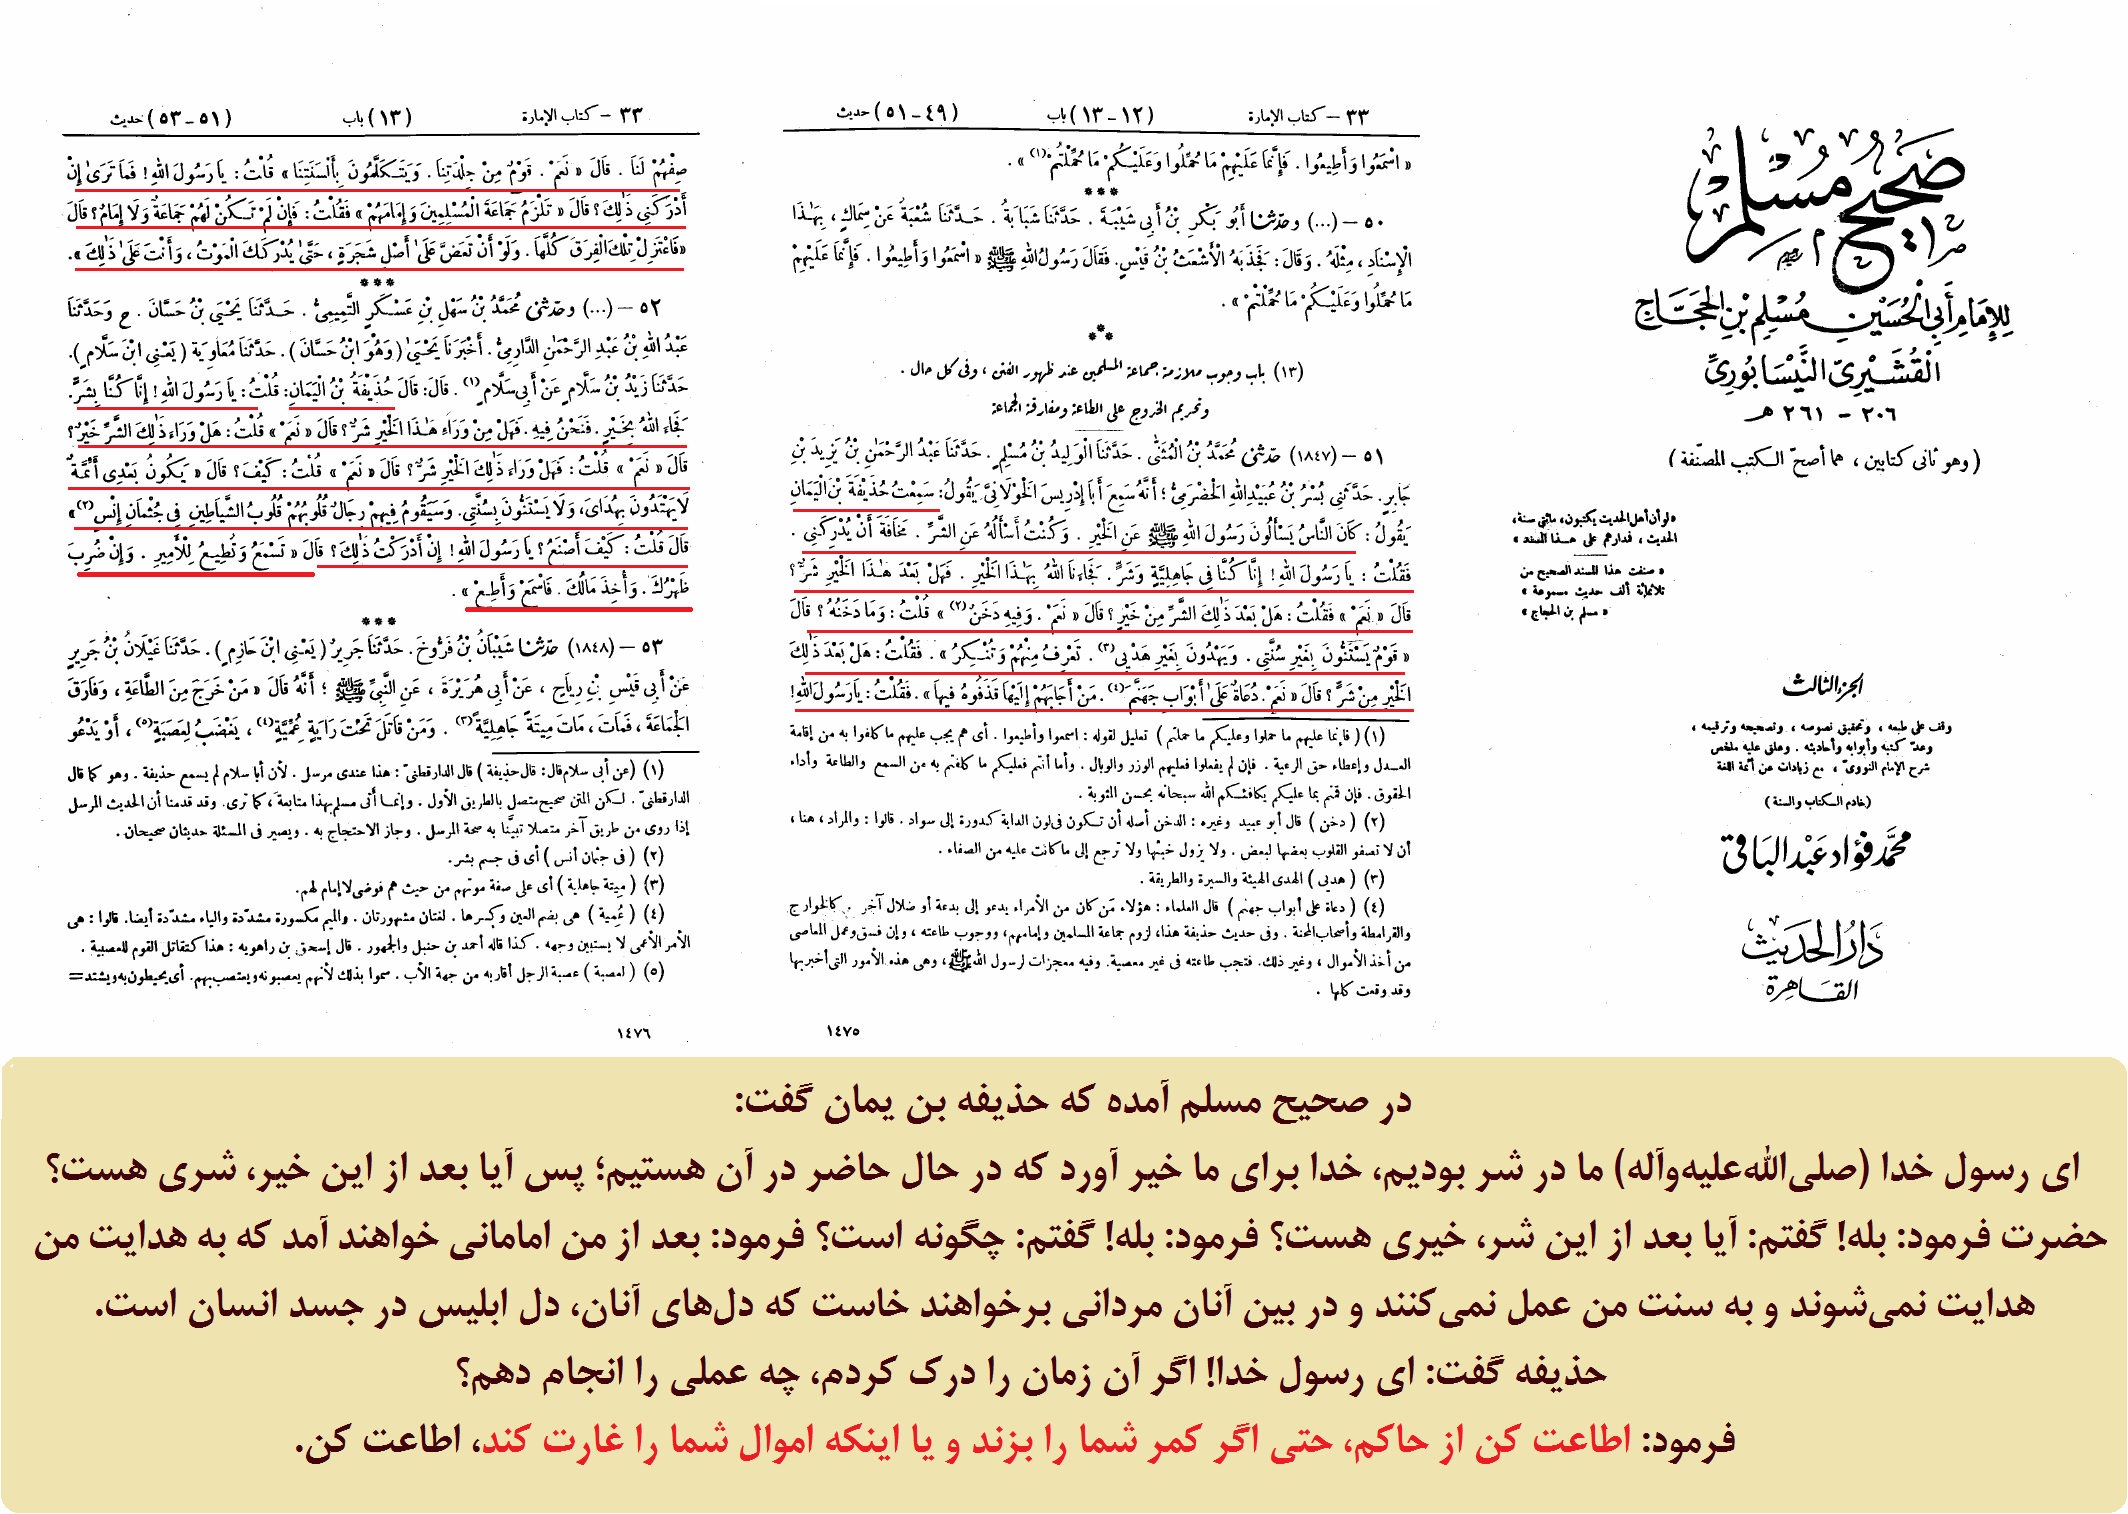 صَحِيحُ مُسْلِم
لِلإِمَامِ أَبِي الْحُسَيْنِ مُسْلِمِ بْنِ الْحَجَّاجِ
الْقُشَيْرِيِّ النَّيْسَابُورِيِّ
٢٠٦ – ٢٦١ هـ
( وهو ثانى كتابين ، هما أصحّ الكتب المصنّفة )
« لو أن أهل الحديث يكتبون، مائتى سنة،
الحديث ، فدارهم على هذا المسند »
« صنفت هذا المسند الصحيح من
ثلاثمائة ألف حديث مسموعة »
« مسلم بن الحجاج »
الجزء الثالث
وقف على طبعه ، وتحقيق نصوصه ، وتصحيحه وترقيمه ،
وعدّ كتبه وأبوابه وأحاديثه . وعلق عليه ملخص
شرح الإمام النووىّ ، مع زيادات عن أئمة اللغة
(خادم الكتاب والسنة)
محمّد فؤاد عبد الباقي
دَارُ الحَديث
القَاهِرة
٣٣ – كتاب الإمارة (١٢ – ١٣) باب (٤٩ – ٥١) حديث
« اسْمَعُوا وَأَطِيعُوا . فَإِنَّمَا عَلَيْهِمْ مَا حُمِّلُوا وَعَلَيْكُمْ مَا حُمِّلْتُمْ(١) » .
***
٥٠ – (...) وحَدَّثَنَا أَبُو بَكْرِ بْنُ أَبِي شَيْبَةَ . حَدَّثَنَا شَبَابَةُ . حَدَّثَنَا شُعْبَةُ عَنْ سِمَاكٍ ، بِهَٰذَا
الْإِسْنَادِ ، مِثْلَهُ . وَقَالَ : فَجَذَبَهُ الْأَشْعَثُ بْنُ قَيْسٍ. فَقَالَ رَسُولُ اللهِ ﷺ « اسْمَعُوا وَأَطِيعُوا . فَإِنَّمَا عَلَيْهِمْ
مَا حُمِّلُوا وَعَلَيْكُمْ مَا حُمِّلْتُمْ » .
***
(١٣) باب وجوب ملازمة جماعة المسلمين عند ظهور الفتن ، وفى كل حال .
وتحريم الخروج على الطاعة ومفارقة الجماعة
٥١ – (١٨٤٧) حَدَّثَنِي مُحَمَّدُ بْنُ الْمُثَنَّىٰ . حَدَّثَنَا الْوَلِيدُ بْنُ مُسْلِمٍ . حَدَّثَنَا عَبْدُ الرَّحْمَٰنِ بْنُ يَزِيدَ بْنِ
جَابِرٍ. حَدَّثَنِي بُسْرُ بْنُ عُبَيْدِ اللهِ الْحَضْرَمِيُّ ؛ أَنَّهُ سَمِعَ أَبَا إِدْرِيسَ الْخَوْلَانِيَّ يَقُولُ: سَمِعْتُ حُذَيْفَةَ بْنَ الْيَمَانِ
يَقُولُ : كَانَ النَّاسُ يَسْأَلُونَ رَسُولَ اللهِ ﷺ عَنِ الْخَيْرِ . وَكُنْتُ أَسْأَلُهُ عَنِ الشَّرِّ . مَخَافَةَ أَنْ يُدْرِكَنِي .
فَقُلْتُ : يَا رَسُولَ اللهِ ! إِنَّا كُنَّا فِي جَاهِلِيَّةٍ وَشَرٍّ . فَجَاءَنَا اللهُ بِهَٰذَا الْخَيْرِ . فَهَلْ بَعْدَ هَٰذَا الْخَيْرِ شَرٌّ ؟
قَالَ « نَعَمْ » فَقُلْتُ : هَلْ بَعْدَ ذَٰلِكَ الشَّرِّ مِنْ خَيْرٍ ؟ قَالَ « نَعَمْ . وَفِيهِ دَخَنٌ(٢) » قُلْتُ : وَمَا دَخَنُهُ ؟ قَالَ
« قَوْمٌ يَسْتَنُّونَ بِغَيْرِ سُنَّتِي . وَيَهْدُونَ بِغَيْرِ هَدْيِي(٣) . تَعْرِفُ مِنْهُمْ وَتُنْكِرُ » . فَقُلْتُ : هَلْ بَعْدَ ذَٰلِكَ
الْخَيْرِ مِنْ شَرٍّ ؟ قَالَ « نَعَمْ . دُعَاةٌ عَلَىٰ أَبْوَابِ جَهَنَّمَ(٤). مَنْ أَجَابَهُمْ إِلَيْهَا قَذَفُوهُ فِيهَا » . فَقُلْتُ : يَا رَسُولَ اللهِ !
(١) ( فإنما عليهم ما حملوا وعليكم ما حملتم ) تعليل لقوله : اسمعوا وأطيعوا . أى هم يجب عليهم ما كلفوا به من إقامة
العدل وإعطاء حق الرعية . فإن لم يفعلوا فعليهم الوزر والوبال . وأما أنتم فعليكم ما كلفتم به من السمع والطاعة وأداء
الحقوق . فإن قمتم بما عليكم يكافئكم الله سبحانه بحسن المثوبة .
(٢) ( دخن ) قال أبو عبيد وغيره : الدخن أصله أن تكون فى لون الدابة كدورة إلى سواد . قالوا : والمراد ، هنا ،
أن لا تصفو القلوب بعضها لبعض . ولا يزول خبثها ولا ترجع إلى ما كانت عليه من الصفاء .
(٣) ( هديى ) الهدى الهيئة والسيرة والطريقة .
(٤) ( دعاة على أبواب جهنم ) قال العلماء : هؤلاء من كان من الأمراء يدعو إلى بدعة أو ضلال آخر . كالخوارج
والقرامطة وأصحاب المحنة . وفى حديث حذيفة هذا، لزوم جماعة المسلمين وإمامهم، ووجوب طاعته ، وإن فسق وعمل المعاصى
من أخذ الأموال ، وغير ذلك. فتجب طاعته فى غير معصية. وفيه معجزات لرسول الله ﷺ، وهى هذه الأمور التى أخبر بها
وقد وقعت كلها .
١٤٧٥
٣٣ – كتاب الإمارة (١٣) باب (٥١ – ٥٣) حديث
صِفْهُمْ لَنَا . قَالَ « نَعَمْ . قَوْمٌ مِنْ جِلْدَتِنَا . وَيَتَكَلَّمُونَ بِأَلْسِنَتِنَا » قُلْتُ : يَا رَسُولَ اللهِ ! فَمَا تَرَىٰ إِنْ
أَدْرَكَنِي ذَٰلِكَ ؟ قَالَ « تَلْزَمُ جَمَاعَةَ الْمُسْلِمِينَ وَإِمَامَهُمْ » فَقُلْتُ : فَإِنْ لَمْ تَكُنْ لَهُمْ جَمَاعَةٌ وَلَا إِمَامٌ ؟ قَالَ
« فَاعْتَزِلْ تِلْكَ الْفِرَقَ كُلَّهَا . وَلَوْ أَنْ تَعَضَّ عَلَىٰ أَصْلِ شَجَرَةٍ ، حَتَّىٰ يُدْرِكَكَ الْمَوْتُ ، وَأَنْتَ عَلَىٰ ذَٰلِكَ » .
***
٥٢ – (...) وحَدَّثَنِي مُحَمَّدُ بْنُ سَهْلِ بْنِ عَسْكَرٍ التَّمِيمِيُّ . حَدَّثَنَا يَحْيَىٰ بْنُ حَسَّانَ . ح وَحَدَّثَنَا
عَبْدُ اللهِ بْنُ عَبْدِ الرَّحْمَٰنِ الدَّارِمِيُّ . أَخْبَرَنَا يَحْيَىٰ (وَهُوَ ابْنُ حَسَّانَ) . حَدَّثَنَا مُعَاوِيَةُ (يَعْنِي ابْنَ سَلَّامٍ).
حَدَّثَنَا زَيْدُ بْنُ سَلَّامٍ عَنْ أَبِي سَلَّامٍ(١) . قَالَ: قَالَ حُذَيْفَةُ بْنُ الْيَمَانِ: قُلْتُ: يَا رَسُولَ اللهِ ! إِنَّا كُنَّا بِشَرٍّ.
فَجَاءَ اللهُ بِخَيْرٍ. فَنَحْنُ فِيهِ. فَهَلْ مِنْ وَرَاءِ هَٰذَا الْخَيْرِ شَرٌّ؟ قَالَ « نَعَمْ » قُلْتُ : هَلْ وَرَاءَ ذَٰلِكَ الشَّرِّ خَيْرٌ ؟
قَالَ « نَعَمْ » قُلْتُ : فَهَلْ وَرَاءَ ذَٰلِكَ الْخَيْرِ شَرٌّ؟ قَالَ « نَعَمْ » قُلْتُ : كَيْفَ ؟ قَالَ « يَكُونُ بَعْدِي أَئِمَّةٌ
لَا يَهْتَدُونَ بِهُدَايَ، وَلَا يَسْتَنُّونَ بِسُنَّتِي. وَسَيَقُومُ فِيهِمْ رِجَالٌ قُلُوبُهُمْ قُلُوبُ الشَّيَاطِينِ فِي جُثْمَانِ إِنْسٍ(٢) »
قَالَ قُلْتُ : كَيْفَ أَصْنَعُ ؟ يَا رَسُولَ اللهِ ! إِنْ أَدْرَكْتُ ذَٰلِكَ ؟ قَالَ « تَسْمَعُ وَتُطِيعُ لِلْأَمِيرِ . وَإِنْ ضُرِبَ
ظَهْرُكَ . وَأُخِذَ مَالُكَ . فَاسْمَعْ وَأَطِعْ » .
***
٥٣ – (١٨٤٨) حَدَّثَنَا شَيْبَانُ بْنُ فَرُّوخَ. حَدَّثَنَا جَرِيرٌ ( يَعْنِي ابْنَ حَازِمٍ ) . حَدَّثَنَا غَيْلَانُ بْنُ جَرِيرٍ
عَنْ أَبِي قَيْسِ بْنِ رِيَاحٍ ، عَنْ أَبِي هُرَيْرَةَ ، عَنِ النَّبِيِّ ﷺ ؛ أَنَّهُ قَالَ « مَنْ خَرَجَ مِنَ الطَّاعَةِ ، وَفَارَقَ
الْجَمَاعَةَ ، فَمَاتَ ، مَاتَ مِيتَةً جَاهِلِيَّةً(٣) . وَمَنْ قَاتَلَ تَحْتَ رَايَةٍ عُمِّيَّةٍ(٤) ، يَغْضَبُ لِعَصَبَةٍ(٥) ، أَوْ يَدْعُو
(١) (عن أبى سلام قال: قال حذيفة) قال الدارقطنىّ : هذا عندى مرسل . لأن أبا سلام لم يسمع حذيفة . وهو كما قال
الدارقطنىّ . لكن المتن صحيح متصل بالطريق الأول . وإنما أتى مسلم بهذا متابعة ، كما ترى. وقد قدمنا أن الحديث المرسل
إذا روى من طريق آخر متصلا تبينّا به صحة المرسل . وجاز الاحتجاج به . ويصير فى المسئلة حديثان صحيحان.
(٢) ( فى جثمان أنس ) أى فى جسم بشر.
(٣) ( ميتة جاهلية ) أى على صفة موتهم من حيث هم فوضى لا إمام لهم.
(٤) ( عمية ) هى بضم العين وكسرها . لغتان مشهورتان . والميم مكسورة مشدّدة والياء مشدّدة أيضا. قالوا : هى
الأمر الأعمى لا يستبين وجهه . كذا قاله أحمد بن حنبل والجمهور . قال إسحق بن راهويه : هذا كتقاتل القوم للعصبية .
(٥) ( لعصبة ) عصبة الرجل أقاربه من جهة الأب . سموا بذلك لأنهم يعصبونه ويعتصب بهم. أى يحيطون به ويشتد =
١٤٧٦
در صحیح مسلم آمده که حذیفه بن یمان گفت:
ای رسول خدا (صلی‌الله‌علیه‌وآله) ما در شر بودیم، خدا برای ما خیر آورد که در حال حاضر در آن هستیم؛ پس آیا بعد از این خیر، شری هست؟
حضرت فرمود: بله! گفتم: آیا بعد از این شر، خیری هست؟ فرمود: بله! گفتم: چگونه است؟ فرمود: بعد از من امامانی خواهند آمد که به هدایت من
هدایت نمی‌شوند و به سنت من عمل نمی‌کنند و در بین آنان مردانی برخواهند خاست که دل‌های آنان، دل ابلیس در جسد انسان است.
حذیفه گفت: ای رسول خدا! اگر آن زمان را درک کردم، چه عملی را انجام دهم؟
فرمود: اطاعت کن از حاکم، حتی اگر کمر شما را بزند و یا اینکه اموال شما را غارت کند، اطاعت کن.